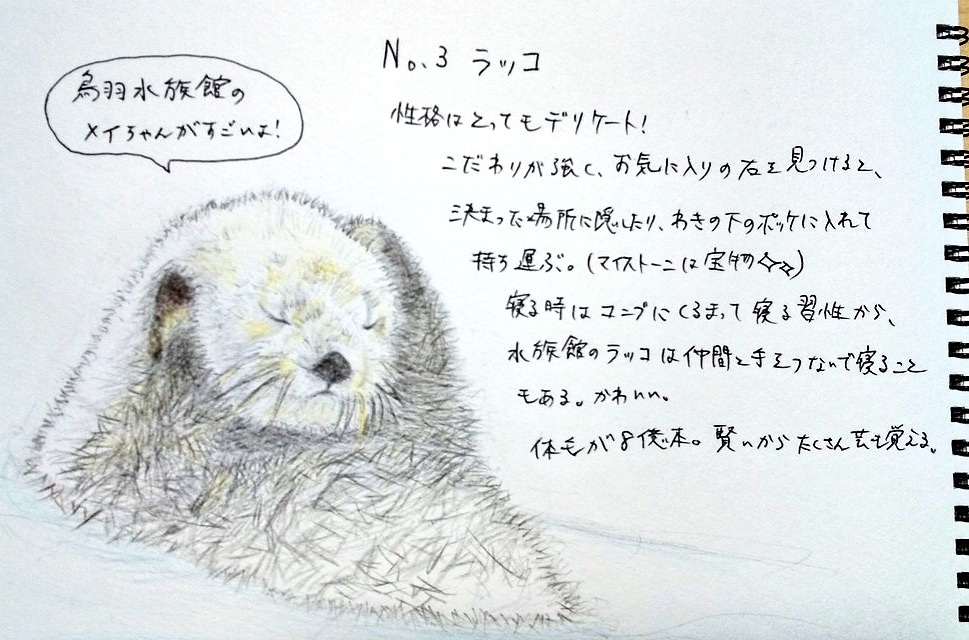 鳥羽水族館の
メイちゃんがすごいよ!
No.3 ラッコ
性格はとってもデリケート!
こだわりが強く、お気に入りの石を見つけると、
決まった場所に隠したり、わきの下のポッケに入れて
持ち運ぶ。(マイストーンは宝物✧✧)
寝る時はコンブにくるまって寝る習性から、
水族館のラッコは仲間と手をつないで寝ること
もある。かわいい。
体毛が8億本。賢いからたくさん芸を覚える。